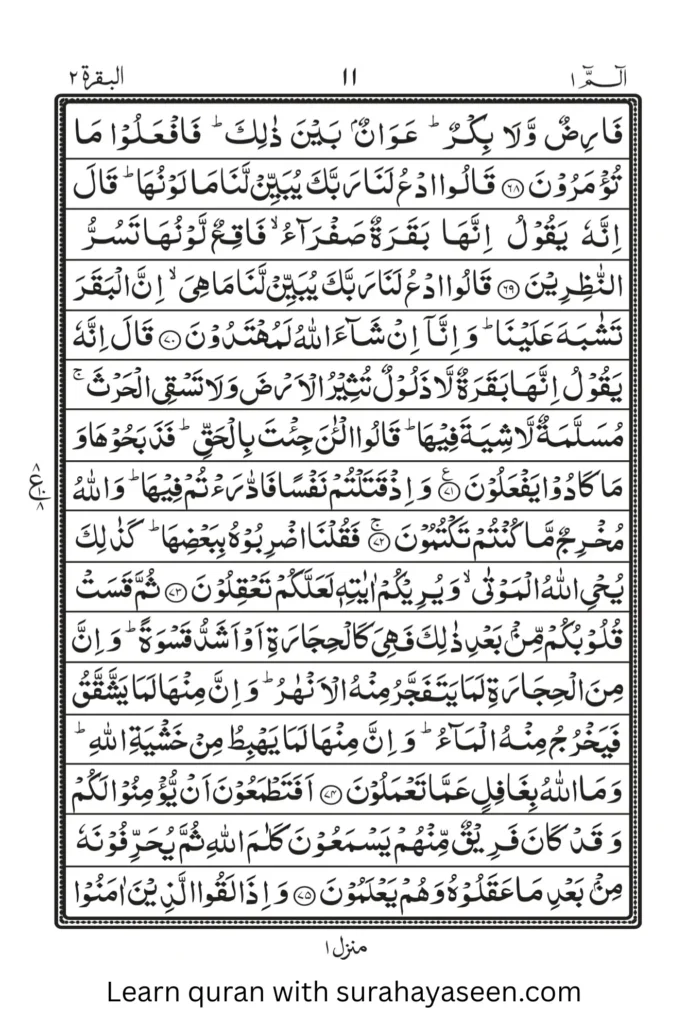 الٓـمّٓ ۱ ۱۱ البقرة ۲
فَارِضٌ وَّلَا بِكْرٌ ؕ عَوَانٌۢ بَيْنَ ذٰلِكَ ؕ فَافْعَلُوْا مَا
تُؤْمَرُوْنَ ۶۸ قَالُوا ادْعُ لَنَا رَبَّكَ يُبَيِّنْ لَّنَا مَا لَوْنُهَا ؕ قَالَ
اِنَّهٗ يَقُوْلُ اِنَّهَا بَقَرَةٌ صَفْرَآءُ ۙ فَاقِعٌ لَّوْنُهَا تَسُرُّ
النّٰظِرِيْنَ ۶۹ قَالُوا ادْعُ لَنَا رَبَّكَ يُبَيِّنْ لَّنَا مَا هِىَ ۙ اِنَّ الْبَقَرَ
تَشٰبَهَ عَلَيْنَا ؕ وَاِنَّاۤ اِنْ شَآءَ اللّٰهُ لَمُهْتَدُوْنَ ۷۰ قَالَ اِنَّهٗ
يَقُوْلُ اِنَّهَا بَقَرَةٌ لَّا ذَلُوْلٌ تُثِيْرُ الْاَرْضَ وَلَا تَسْقِى الْحَرْثَ ۚ
مُسَلَّمَةٌ لَّا شِيَةَ فِيْهَا ؕ قَالُوا الْـٰٔنَ جِئْتَ بِالْحَقِّ ؕ فَذَبَحُوْهَا وَ
مَا كَادُوْا يَفْعَلُوْنَ ۷۱ ع وَاِذْ قَتَلْتُمْ نَفْسًا فَادّٰرَءْتُمْ فِيْهَا ؕ وَاللّٰهُ
۸ ع ۱۰ ۸
مُخْرِجٌ مَّا كُنْتُمْ تَكْتُمُوْنَ ۷۲ ۚ فَقُلْنَا اضْرِبُوْهُ بِبَعْضِهَا ؕ كَذٰلِكَ
يُحْىِ اللّٰهُ الْمَوْتٰى ۙ وَيُرِيْكُمْ اٰيٰتِهٖ لَعَلَّكُمْ تَعْقِلُوْنَ ۷۳ ثُمَّ قَسَتْ
قُلُوْبُكُمْ مِّنْۢ بَعْدِ ذٰلِكَ فَهِىَ كَالْحِجَارَةِ اَوْ اَشَدُّ قَسْوَةً ؕ وَاِنَّ
مِنَ الْحِجَارَةِ لَمَا يَتَفَجَّرُ مِنْهُ الْاَنْهٰرُ ؕ وَاِنَّ مِنْهَا لَمَا يَشَّقَّقُ
فَيَخْرُجُ مِنْهُ الْمَآءُ ؕ وَاِنَّ مِنْهَا لَمَا يَهْبِطُ مِنْ خَشْيَةِ اللّٰهِ ؕ
وَمَا اللّٰهُ بِغَافِلٍ عَمَّا تَعْمَلُوْنَ ۷۴ اَفَتَطْمَعُوْنَ اَنْ يُّؤْمِنُوْا لَكُمْ
وَقَدْ كَانَ فَرِيْقٌ مِّنْهُمْ يَسْمَعُوْنَ كَلٰمَ اللّٰهِ ثُمَّ يُحَرِّفُوْنَهٗ
مِنْۢ بَعْدِ مَا عَقَلُوْهُ وَهُمْ يَعْلَمُوْنَ ۷۵ وَاِذَا لَقُوا الَّذِيْنَ اٰمَنُوْا
منزل ۱
Learn quran with surahayaseen.com